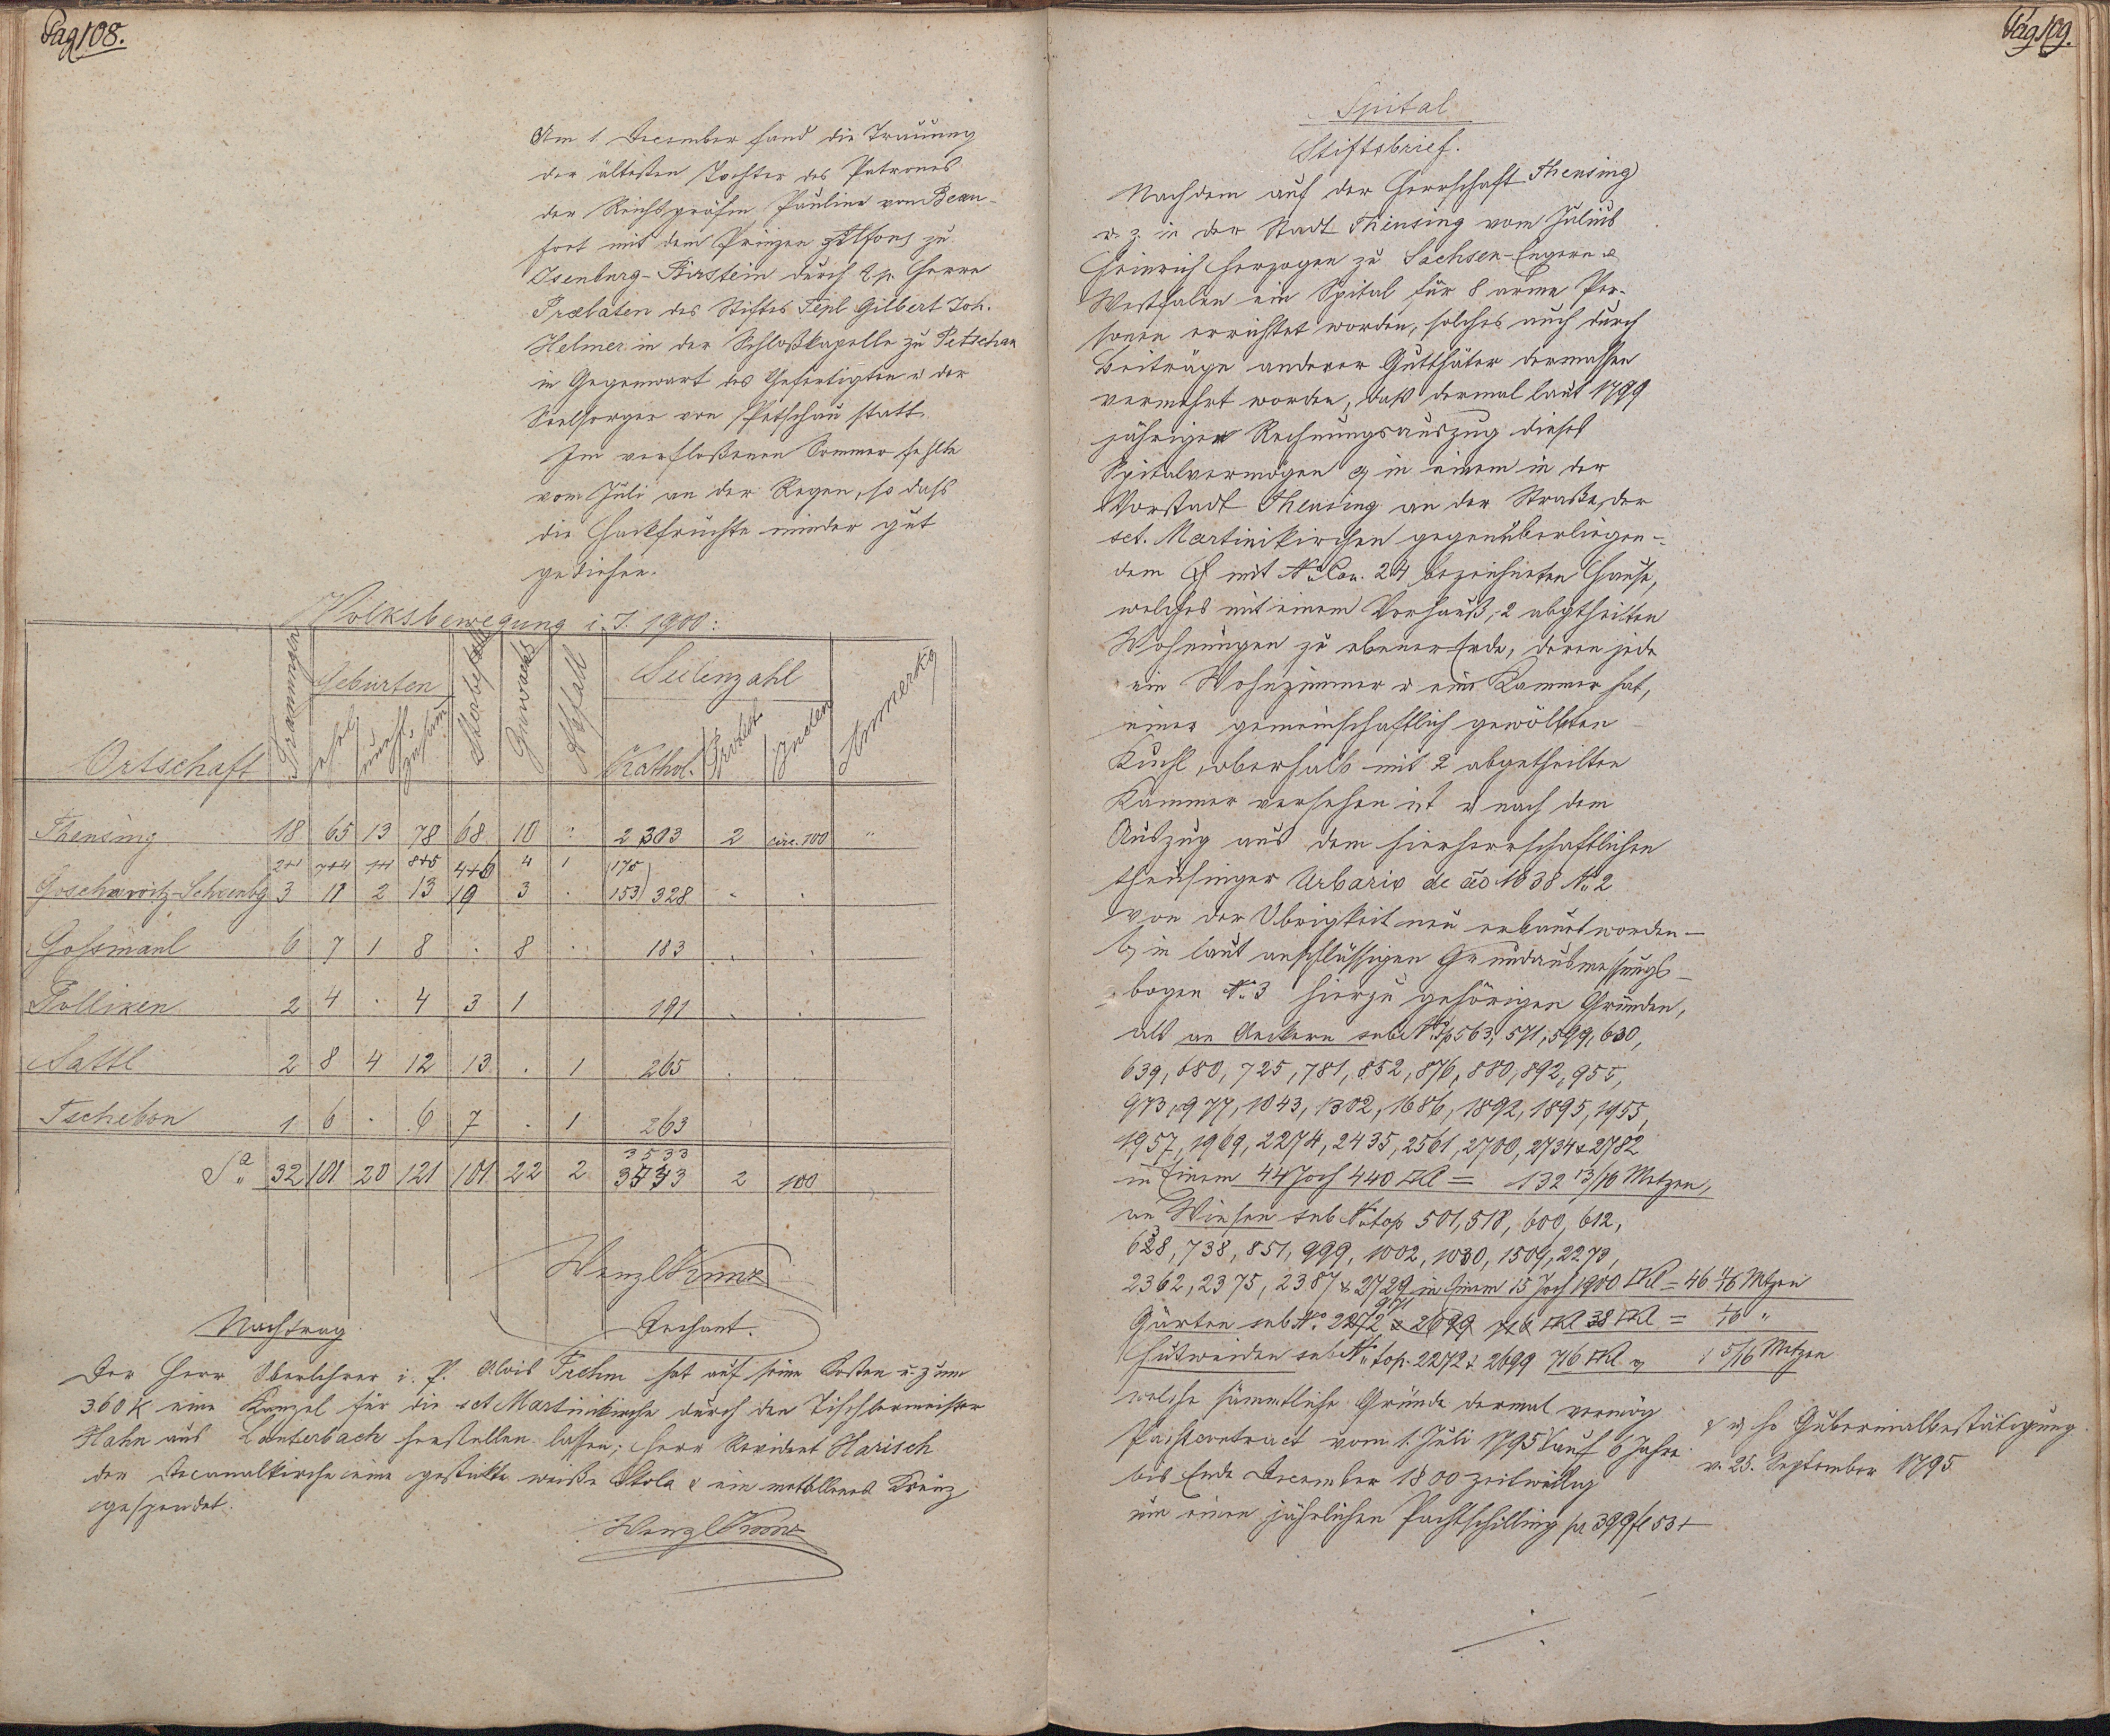 Pag 108.
Am 1. December fand die Trauung
der ältesten Tochter des Patrones
der Reichsgräfin Pauline von Beau-
fort mit dem Prinzen Alfons zu
Isenburg-Birstein durch Herrn
Prælaten des Stiftes Tepl Gilbert Joh.
Helmer in der Schloßkapelle zu Petschau
in Gegenwart des Gefertigten u. der
Seelsorger von Petschau statt.
Im verfloßenen Sommer fehlte
vom Juli an der Regen, so daß
die Hackfrüchte minder gut
gediehen.
Volksbewegung i. J. 1900:
Ortschaft Trauungen Geburten ehel. unehl. zusam. Sterbefälle Zuwachs Abfall Seelenzahl Kathol. Protest. Juden Anmerkg
Theusing 18 65 13 78 68 10 " 2303 2 circ. 100 "
2+1 7+4 1+1 8+5 4+6 4 1 175
Goschawitz-Schönbg 3 11 2 13 10 3 . 153) 328 . .
Gossmaul 6 7 1 8 . 8 . 183 . .
Polliken 2 4 . 4 3 1 191 . .
Sattl 2 8 4 12 13 . 1 265 . .
Tschebon 1 6 . 6 7 . 1 263
3533
Sa 32 101 20 121 101 22 2 3533 2 100
Wenzl Kunz
Dechant.
Nachtrag
Der Herr Oberlehrer i. P. Alois Trehm hat auf seine Kosten u. zum
360 K eine Kanzel für die sct Martinikirche durch den Tischlermeister
Hahn aus Lauterbach herstellen lassen; Herr Revident Harisch
der Decanalkirche eine gestickte weiße Stola & ein metallenes Kreuz
gespendet.
Wenzl Kunz
Pag 109.
Spital
Stiftsbrief.
Nachdem auf der Herrschaft Theusing
u. z. in der Stadt Theusing vom Julius
Heinrich Herzogen zu Sachsen-Engern &
Westfalen ein Spital für 8 arme Per-
sonen errichtet worden, solches auch durch
Beiträge anderer Gutthäter dermassen
vermehrt worden, daß dermal laut 1799
jährigen Rechnungsauszug dieses
Spitalvermögen a) in einem in der
Vorstadt Theusing an der Straße, der
sct. Martinikirchen gegenüberliegen-
dem & mit No Con. 24 bezeichneten Hause,
welches mit einem Vorhauß, 2 abgtheilten
Wohnungen zu ebener Erde, deren jede
ein Wohnzimmer u eine Kammer hat,
einer gemeinschaftlich gewölbten
Kuchl, oberhalb mit 2 abgetheilten
Kammer versehen ist u nach dem
Auszug aus dem hierherrschaftlichen
theusinger Urbario de ão 1638 No 2
von der Obrigkeit neu erbaut worden —
b) in laut anschlüssigen Grundausmessungs-
bogen No 3 hierzu gehörigen Gründen,
als an Aeckern sub No top 563, 571, 599, 630,
639, 680, 725, 781, 852, 876, 880, 892, 955,
973, 977, 1043, 1302, 1686, 1892, 1895, 1955,
1957, 1969, 2274, 2435, 2561, 2700, 2734 & 2782
in Einem 44 Joch 440 □Kl = 132 13/16 Metzen,
an Wiesen sub No top 501, 518, 600, 612,
628, 738, 851, 999, 1002, 1030, 1509, 2273,
2362, 2375, 2387 & 2729 in Einem 15 Joch 1900 □Kl = 46 1/16 Metzen
Gärten sub No 971 38 □Kl = 1/16 "
Hutweiden sub No top. 2272 & 2699 716 □Kl 1 5/16 Metzen
welche sämmtliche Gründe dermal vermög
Pachtcontract vom 1. Juli 1795 auf 6 Jahre
bis Ende December 1800 zeitweilig
um einen jährlichen Pachtschilling pr 399 fl 53 x
& u. ho Gubernialbestätigung
v. 25. September 1795